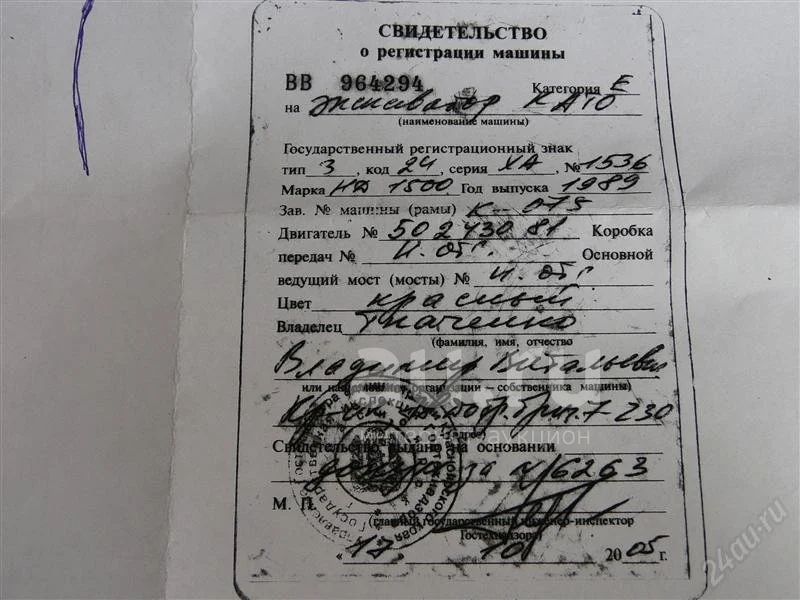 СВИДЕТЕЛЬСТВО
о регистрации машины
ВВ 964294 Категория Е
на экскаватор КАТО
(наименование машины)
Государственный регистрационный знак
тип 3, код 24, серия ХА, № 1536
Марка НД 1500 Год выпуска 1989
Зав. № машины (рамы) К-075
Двигатель № 50243081 Коробка
передач № Н. отс. Основной
ведущий мост (мосты) № Н. отс.
Цвет красный
Владелец Ткаченко
(фамилия, имя, отчество
Владимир Витальевич
или наименование организации – собственника машины)
7-230
Свидетельство выдано на основании
№ 6263
М. П.
(главный государственный инженер-инспектор
Гостехнадзора)
" 17 " 10 2005 г.
24au.ru